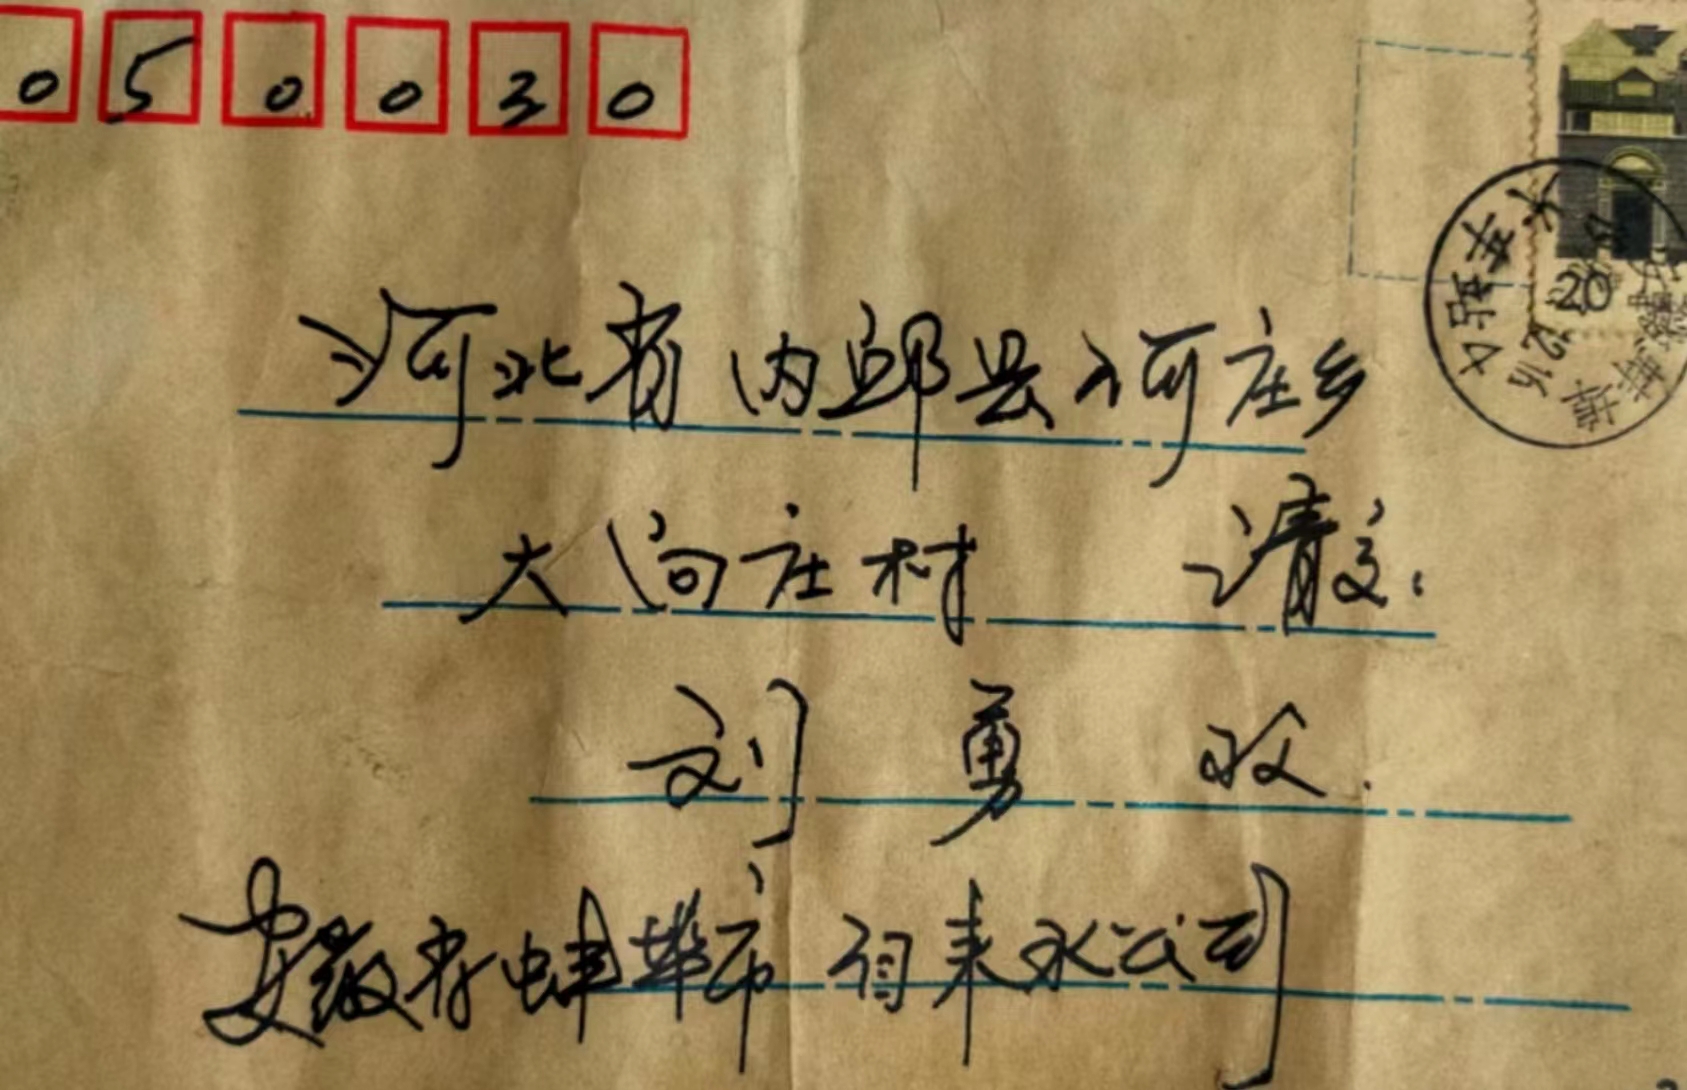 050030
20
河北省内邱县河庄乡
大向庄村 请交:
刘勇收.
安徽省蚌埠市自来水公司